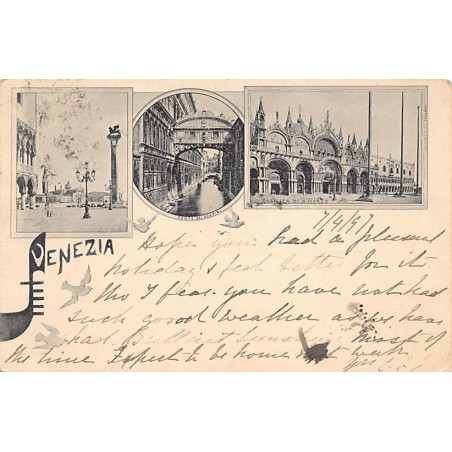 PONTE DEI SOSPIRI
BASILICA DI S. MARCO
VENEZIA
7/4/97
Hope you had a pleasant
holiday & feel better for it
tho I fear you have not had
such good weather as we have
had. Brilliant sunshine most of
the time I expect to be home next week
Yrs